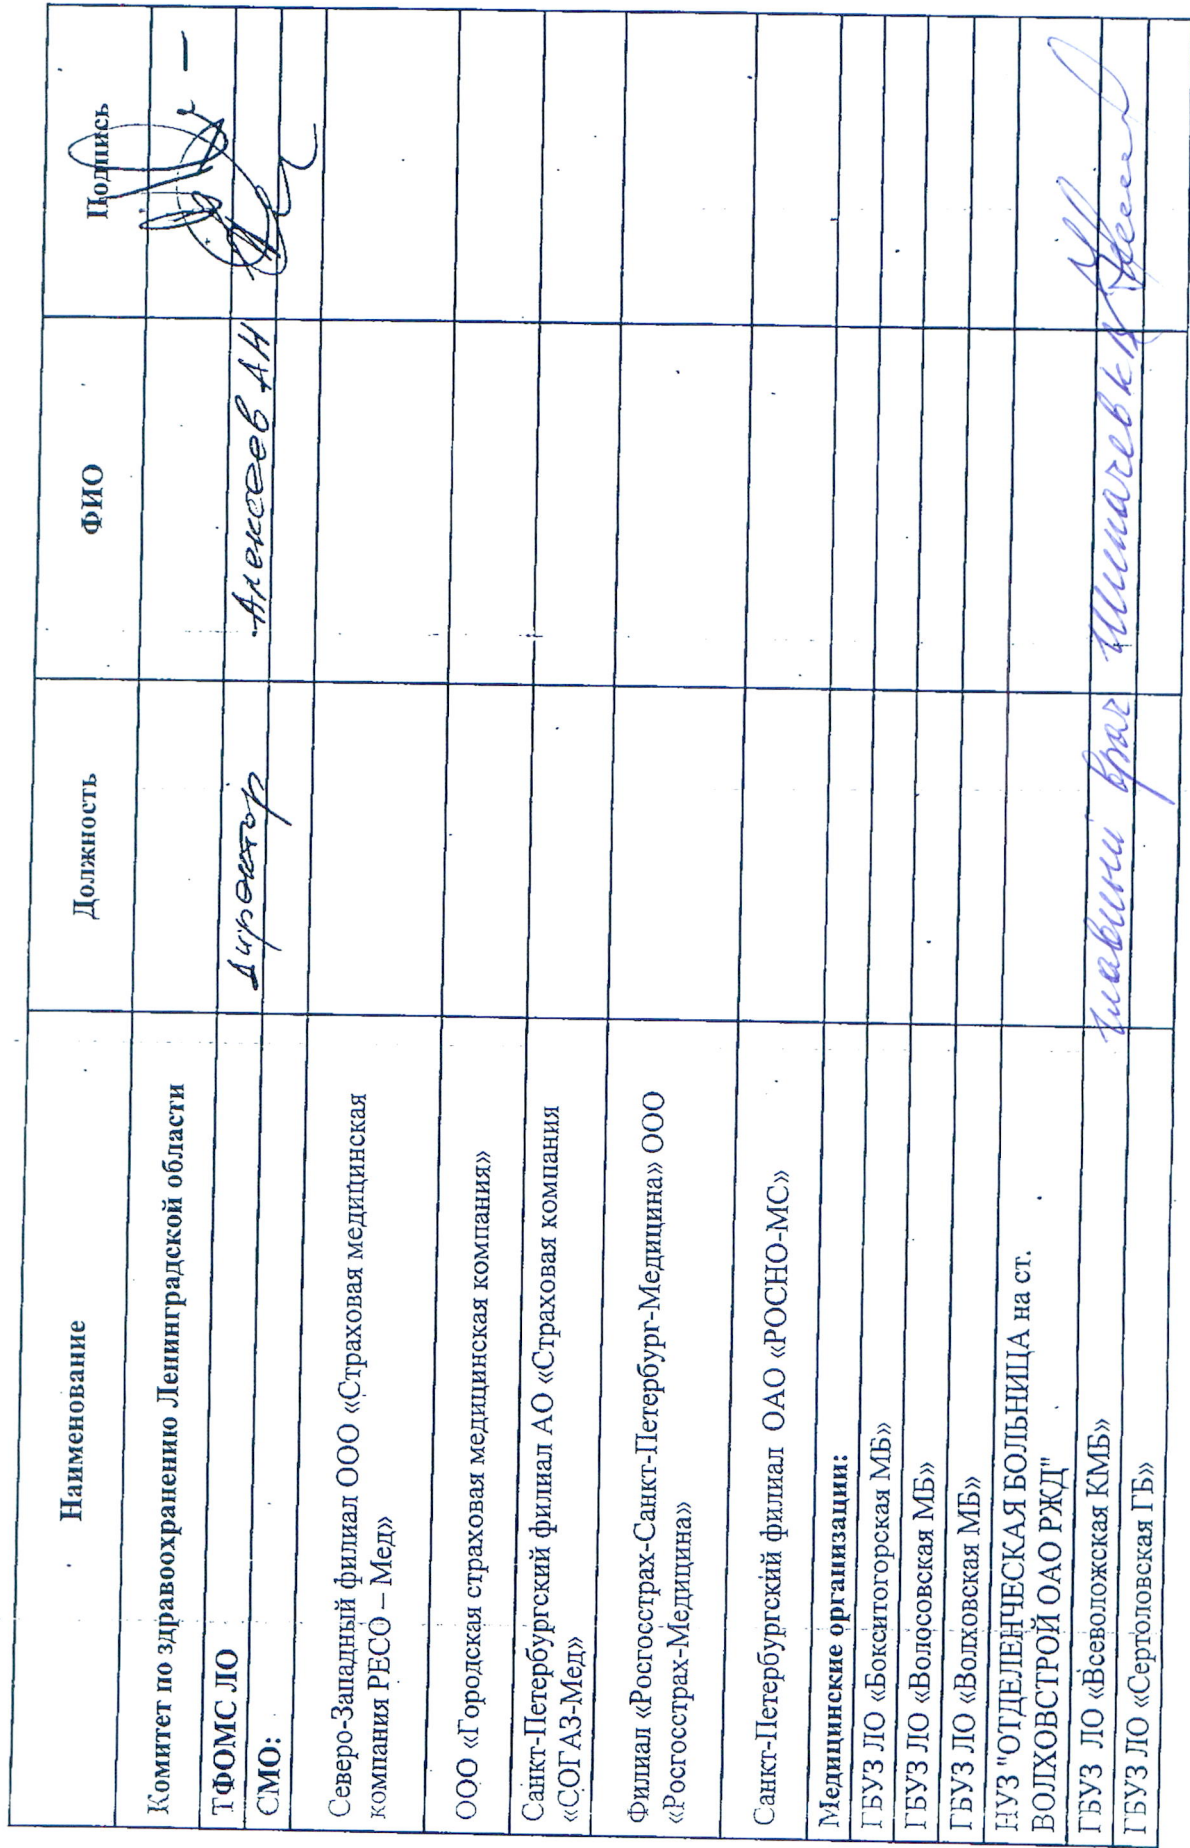 Наименование Должность ФИО Подпись
Комитет по здравоохранению Ленинградской области
ТФОМС ЛО директор Алексеев АН
СМО:
Северо-Западный филиал ООО «Страховая медицинская
компания РЕСО – Мед»
ООО «Городская страховая медицинская компания»
Санкт-Петербургский филиал АО «Страховая компания
«СОГАЗ-Мед»
Филиал «Росгосстрах-Санкт-Петербург-Медицина» ООО
«Росгосстрах-Медицина»
Санкт-Петербургский филиал ОАО «РОСНО-МС»
Медицинские организации:
ГБУЗ ЛО «Бокситогорская МБ»
ГБУЗ ЛО «Волосовская МБ»
ГБУЗ ЛО «Волховская МБ»
НУЗ "ОТДЕЛЕНЧЕСКАЯ БОЛЬНИЦА на ст.
ВОЛХОВСТРОЙ ОАО РЖД"
ГБУЗ ЛО «Всеволожская КМБ» главный врач Шипачев К
ГБУЗ ЛО «Сертоловская ГБ»